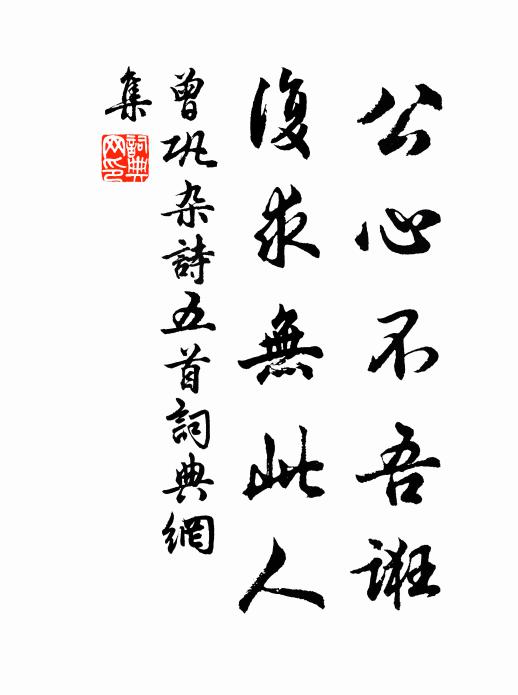 公心不吾誑
復求無此人
曾巩杂詩五首詞典網
集
詞典
网印